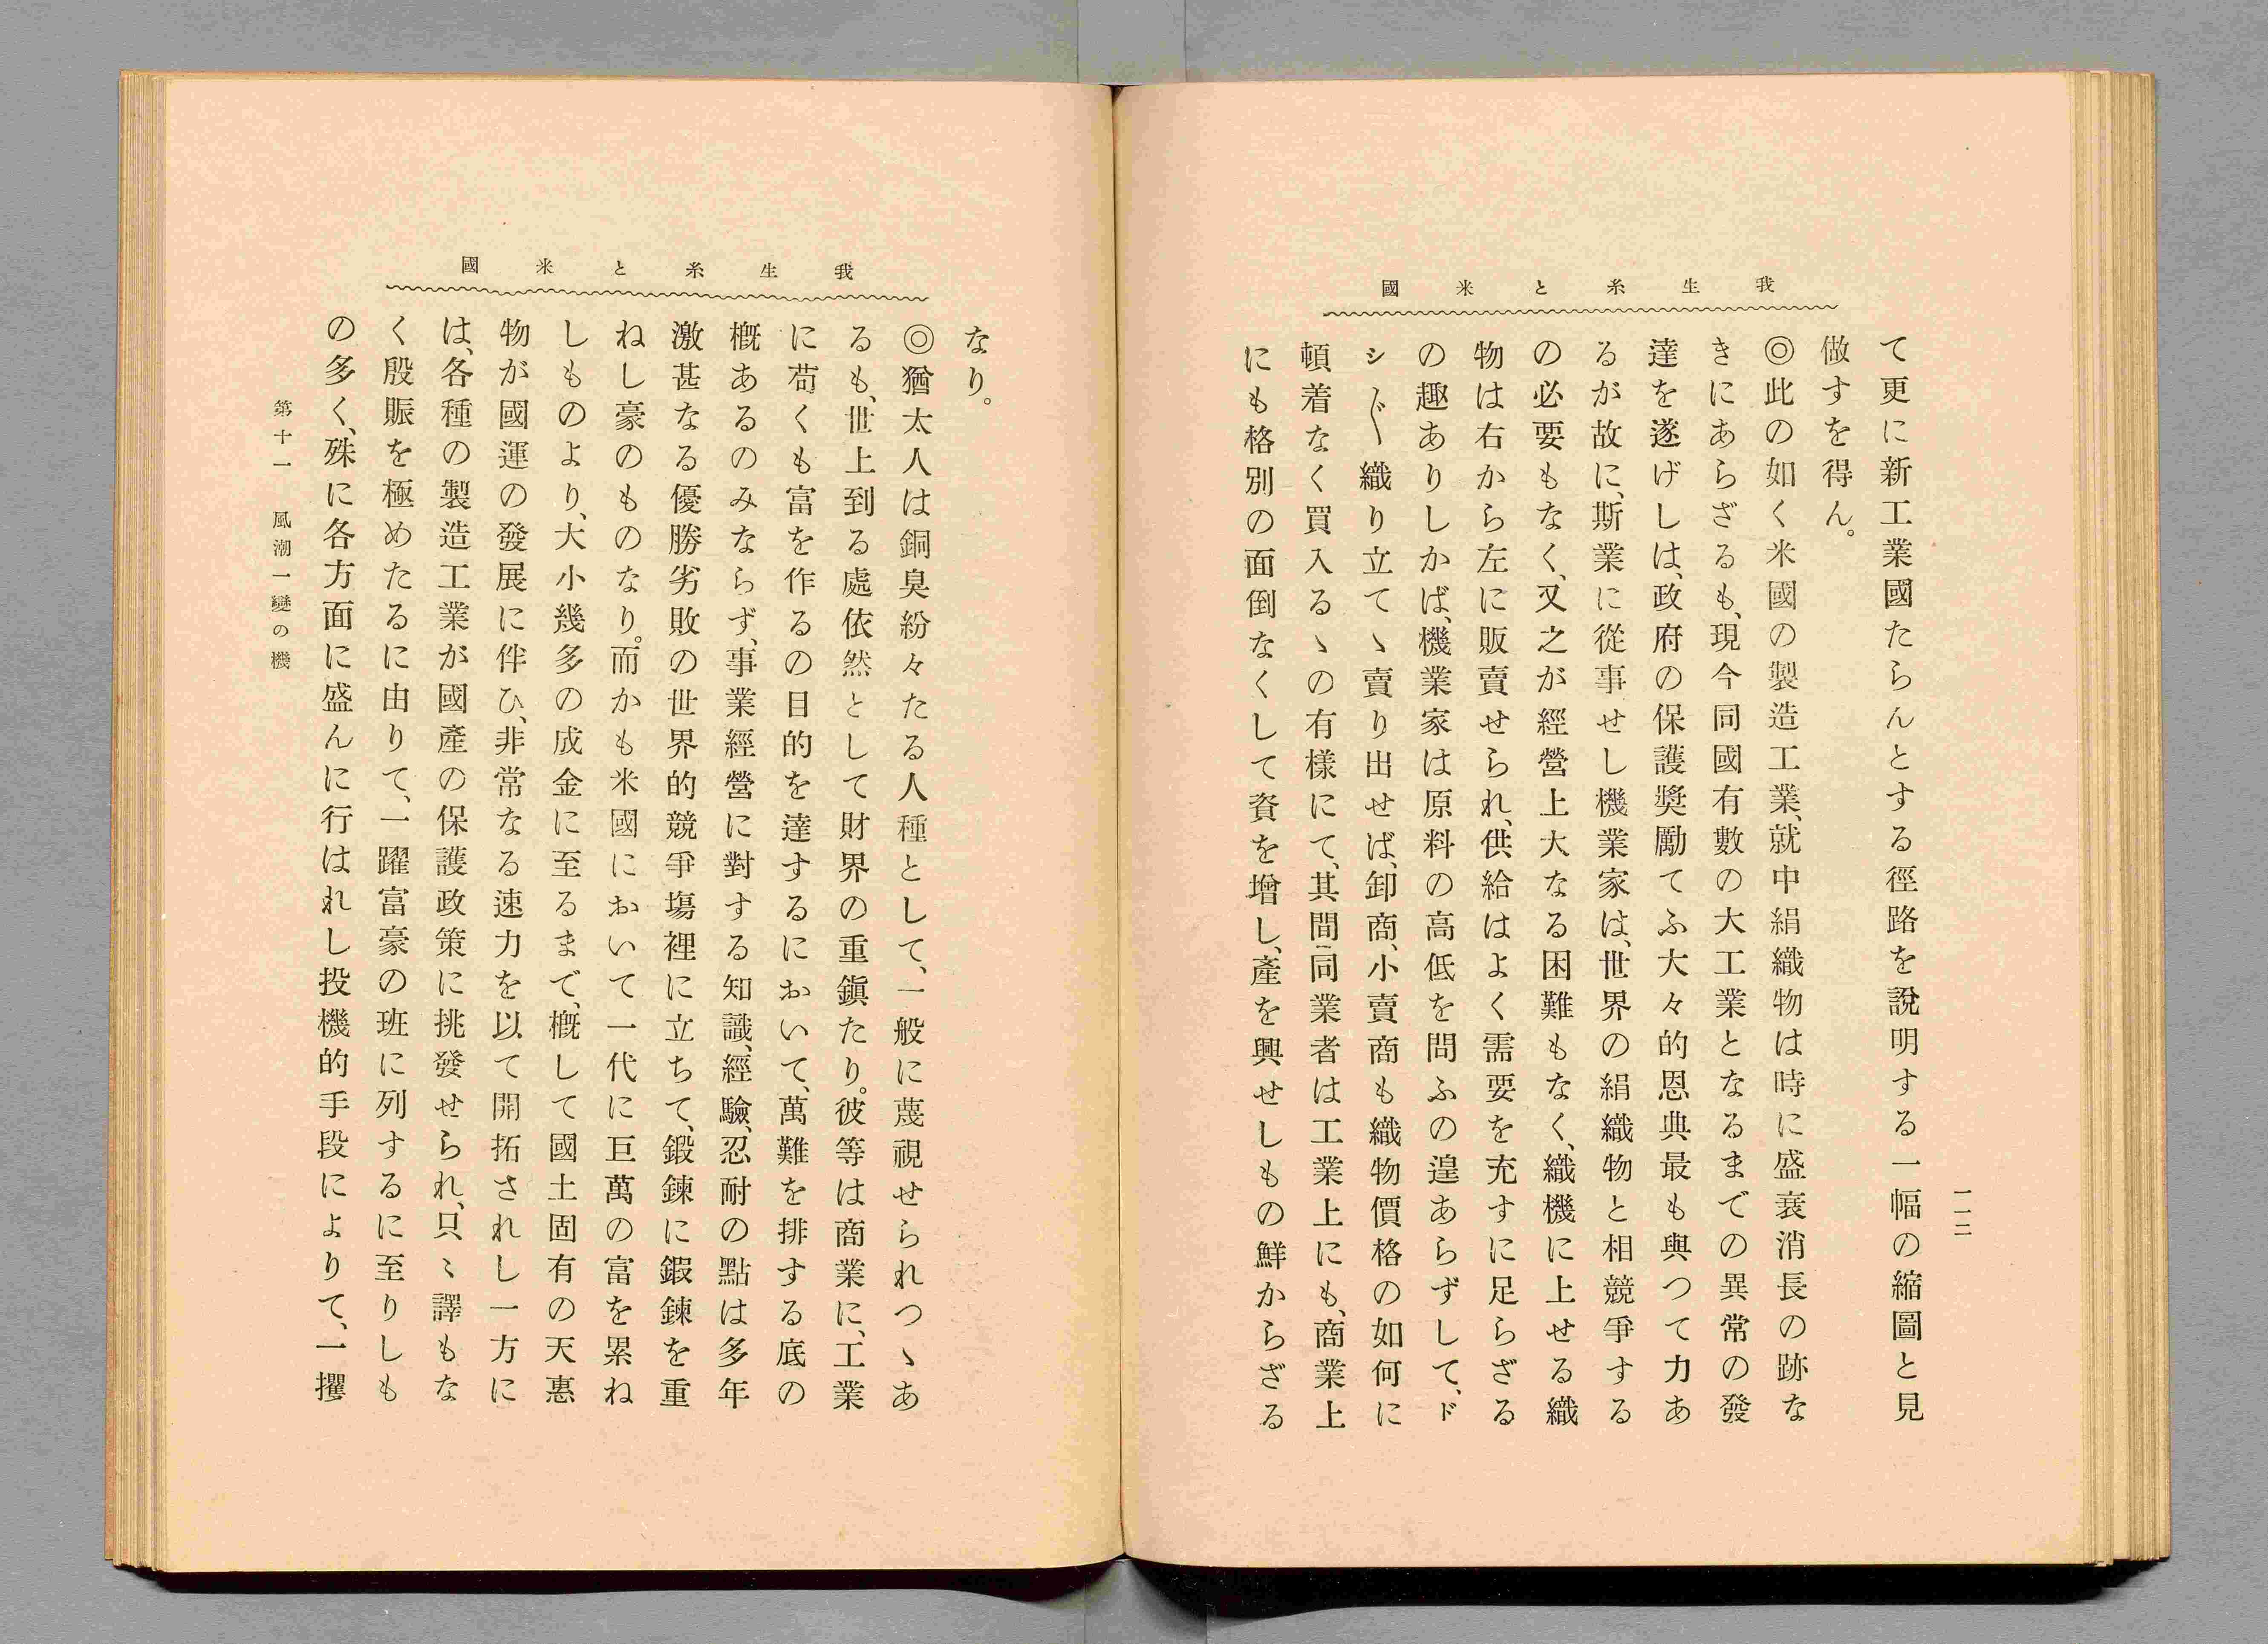 我生糸と米國
一一二
て更に新工業國たらんとする徑路を說明する一幅の縮圖と見
做すを得ん。
◎此の如く米國の製造工業、就中絹織物は時に盛衰消長の跡な
きにあらざるも、現今同國有數の大工業となるまでの異常の發
達を遂げしは、政府の保護奬勵てふ大々的恩典最も與つて力あ
るが故に、斯業に從事せし機業家は、世界の絹織物と相競爭する
の必要もなく、又之が經營上大なる困難もなく、織機に上せる織
物は右から左に販賣せられ、供給はよく需要を充すに足らざる
の趣ありしかば、機業家は原料の高低を問ふの遑あらずして、ド
シ〴〵織り立てゝ賣り出せば、卸商、小賣商も織物價格の如何に
頓着なく買入るゝの有樣にて、其間同業者は工業上にも、商業上
にも格別の面倒なくして資を增し、產を興せしもの鮮からざる
我生糸と米國
なり。
◎猶太人は銅臭紛々たる人種として、一般に蔑視せられつゝあ
るも、世上到る處依然として財界の重鎭たり。彼等は商業に、工業
に苟くも富を作るの目的を達するにおいて、萬難を排する底の
槪あるのみならず、事業經營に對する知識、經驗、忍耐の點は多年
激甚なる優勝劣敗の世界的競爭塲裡に立ちて、鍛鍊に鍜鍊を重
ねし豪のものなり。而かも米國において一代に巨萬の富を累ね
しものより、大小幾多の成金に至るまで、槪して國土固有の天惠
物が國運の發展に伴ひ、非常なる速力を以て開拓されし一方に
は、各種の製造工業が國產の保護政策に挑發せられ、只〻譯もな
く殷賑を極めたるに由りて、一躍富豪の班に列するに至りしも
の多く、殊に各方面に盛んに行はれし投機的手段によりて、一攫
第十一 風潮一變の機